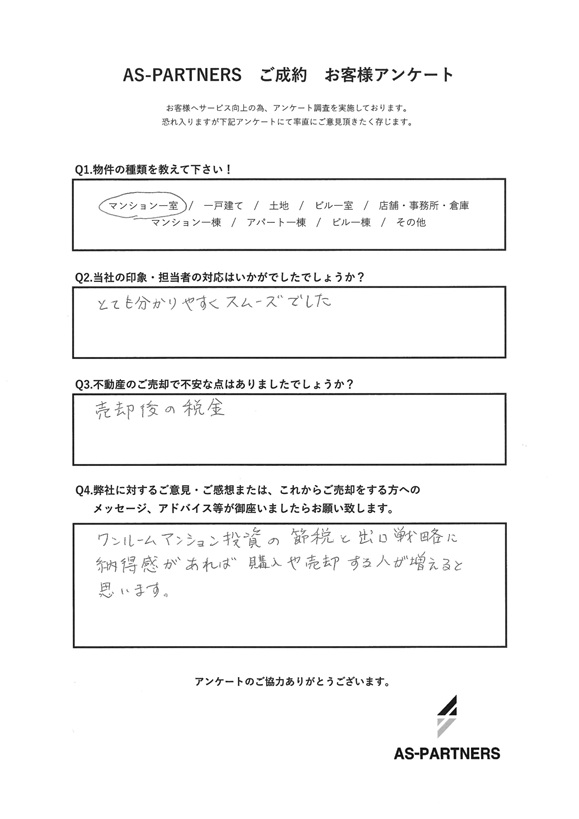 AS-PARTNERS　ご成約　お客様アンケート
お客様へサービス向上の為、アンケート調査を実施しております。
恐れ入りますが下記アンケートにて率直にご意見頂きたく存じます。
Q1.物件の種類を教えて下さい！
マンション一室 / 一戸建て / 土地 / ビル一室 / 店舗・事務所・倉庫
マンション一棟 / アパート一棟 / ビル一棟 / その他
Q2.当社の印象・担当者の対応はいかがでしたでしょうか？
とても分かりやすくスムーズでした
Q3.不動産のご売却で不安な点はありましたでしょうか？
売却後の税金
Q4.弊社に対するご意見・ご感想または、これからご売却をする方への
メッセージ、アドバイス等が御座いましたらお願い致します。
ワンルームマンション投資の節税と出口戦略に
納得感があれば購入や売却する人が増えると
思います。
アンケートのご協力ありがとうございます。
AS-PARTNERS